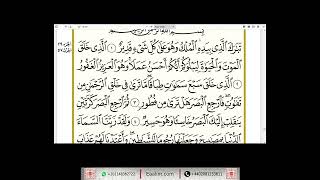 بِسْمِ اللَّهِ الرَّحْمَٰنِ الرَّحِيمِ
تَبَارَكَ الَّذِي بِيَدِهِ الْمُلْكُ وَهُوَ عَلَىٰ كُلِّ شَيْءٍ قَدِيرٌ ١ الَّذِي خَلَقَ
الْمَوْتَ وَالْحَيَاةَ لِيَبْلُوَكُمْ أَيُّكُمْ أَحْسَنُ عَمَلًا وَهُوَ الْعَزِيزُ الْغَفُورُ
٢ الَّذِي خَلَقَ سَبْعَ سَمَاوَاتٍ طِبَاقًا مَّا تَرَىٰ فِي خَلْقِ الرَّحْمَٰنِ مِن
تَفَاوُتٍ فَارْجِعِ الْبَصَرَ هَلْ تَرَىٰ مِن فُطُورٍ ٣ ثُمَّ ارْجِعِ الْبَصَرَ كَرَّتَيْنِ
يَنقَلِبْ إِلَيْكَ الْبَصَرُ خَاسِئًا وَهُوَ حَسِيرٌ ٤ وَلَقَدْ زَيَّنَّا السَّمَاءَ
الدُّنْيَا بِمَصَابِيحَ وَجَعَلْنَاهَا رُجُومًا لِّلشَّيَاطِينِ وَأَعْتَدْنَا لَهُمْ عَذَابَ